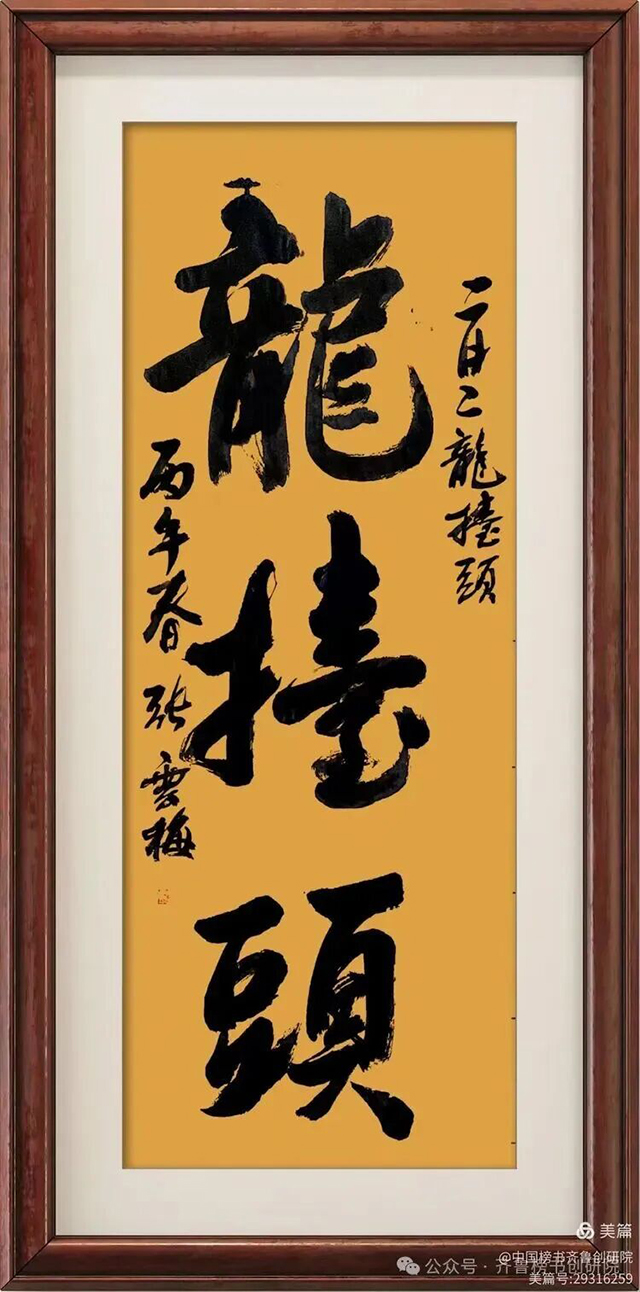 二月二龍擡頭
龍擡頭
丙午春 張雲梅
美篇
@中国榜书齐鲁创研院
公众号 · 齐鲁榜书创研院
美篇号:29316259